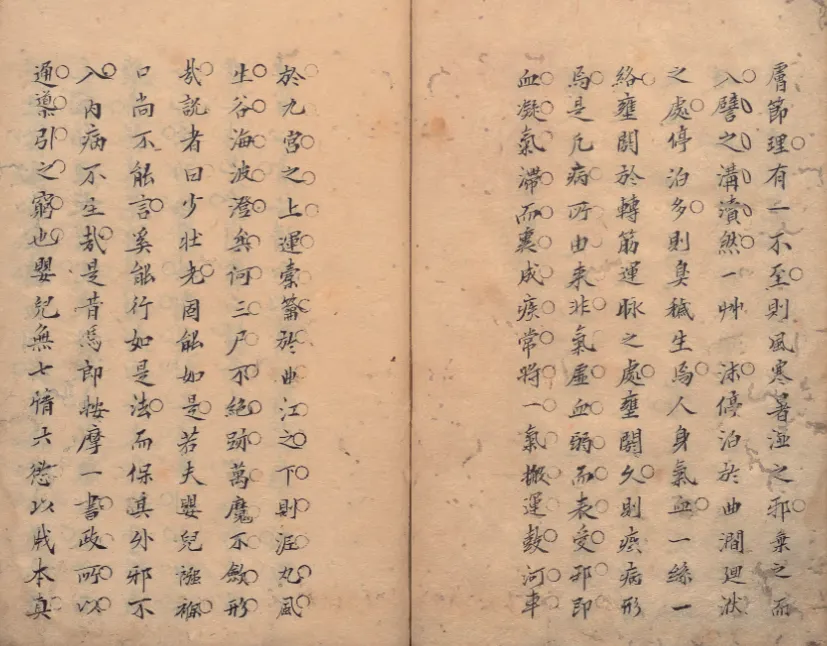 膚節理有一不至則風寒暑溼之邪乘之而
入譬之溝瀆然一艸一沫停泊於曲澗廻洑
之處停泊多則臭穢生焉人身氣血一絲一
絡壅閼於轉筋運脉之處壅閼久則瘀病形
焉是凡病所由来非氣虛血弱而表受邪即
血凝氣滯而裏成疾常將一氣搬運鼓河車
於九宮之上運橐籥於曲江之下則泥丸風
生谷海波澄矣何三尸不絕跡萬魔不斂形
㢤說者曰少壯老固能如是若夫嬰兒襁褓
口尚不能言奚能行如是法而保真外邪不
入內病不生㢤是昔焉即按摩一書政所以
通導引之窮也嬰兒無七情六慾以戕本真